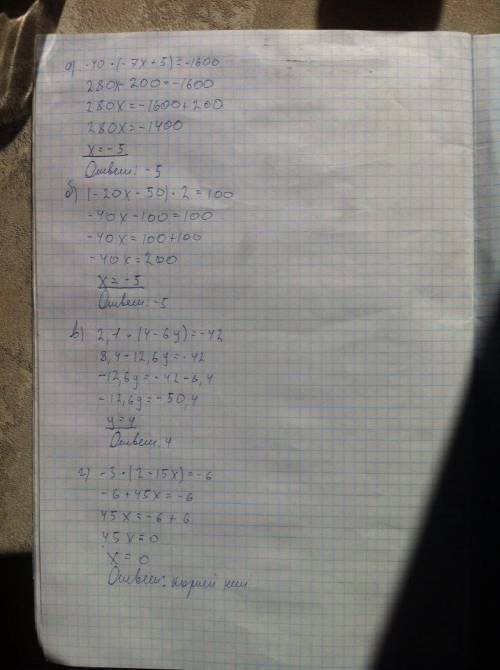 а) -40·(-7х+5)=-1600
280х-200=-1600
280х=-1600+200
280х=-1400
х=-5
Ответ: -5
б) (-20х-50)·2=100
-40х-100=100
-40х=100+100
-40х=200
х=-5
Ответ: -5
в) 2,1·(4-6у)=-42
8,4-12,6у=-42
-12,6у=-42-8,4
-12,6у=-50,4
у=4
Ответ: 4
г) -3·(2-15х)=-6
-6+45х=-6
45х=-6+6
45х=0
х=0
Ответ: корней нет